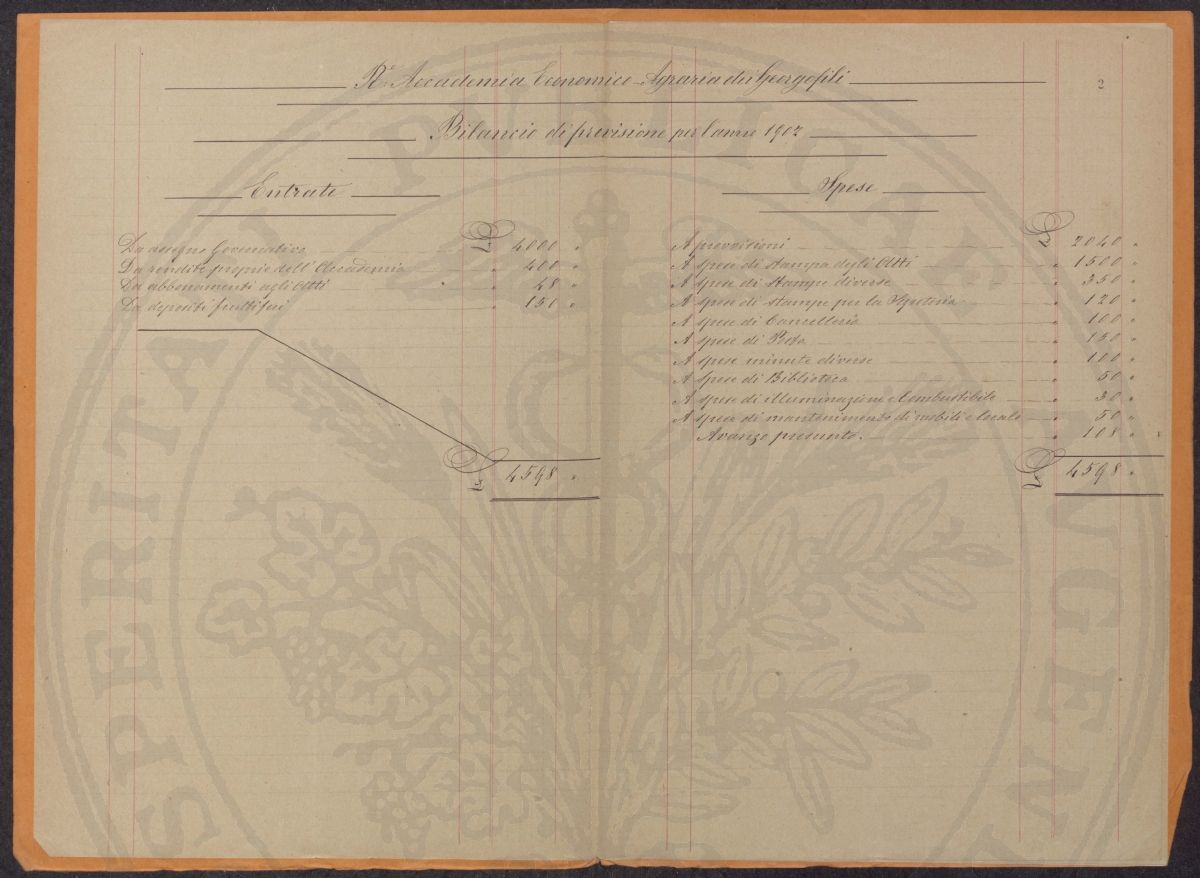 2
Re Accademia Economico-Agraria dei Georgofili
Bilancio di previsione per l'anno 1902
Entrate
Da assegno Governativo L. 4000 "
Da rendite proprie dell'Accademia " 400 "
Da abbonamenti agli Atti " 48 "
Da depositi fruttiferi " 150 "
L. 4598 "
Spese
A provvisioni L. 2040 "
A spese di stampa degli Atti " 1500 "
A spese di stampe diverse " 350 "
A spese di stampe per la " 120 "
A spese di Cancelleria " 100 "
A spese di Posta " 150 "
A spese minute diverse " 100 "
A spese di Biblioteca " 50 "
A spese di illuminazione e Combustibile " 30 "
A spese di mantenimento di mobili e locale " 50 "
Avanzo presunto. " 108 "
L. 4598 "
SPERITATI PVBLICAE AVGEN